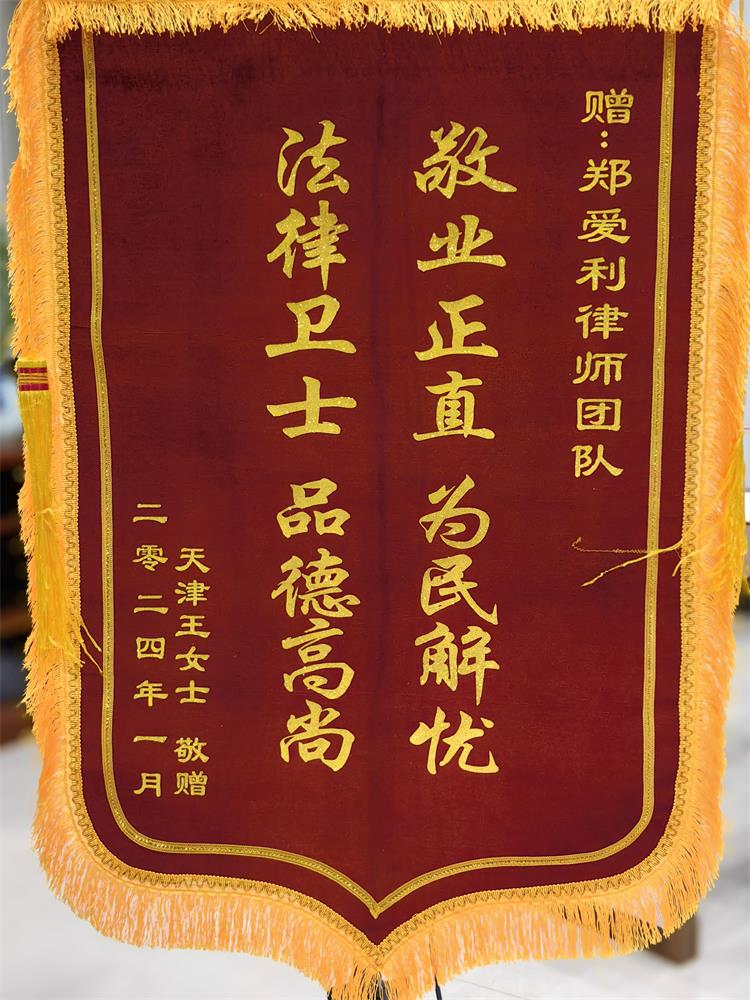 赠：郑爱利律师团队
敬业正直 为民解忧
法律卫士 品德高尚
天津王女士 敬赠
二零二四年一月